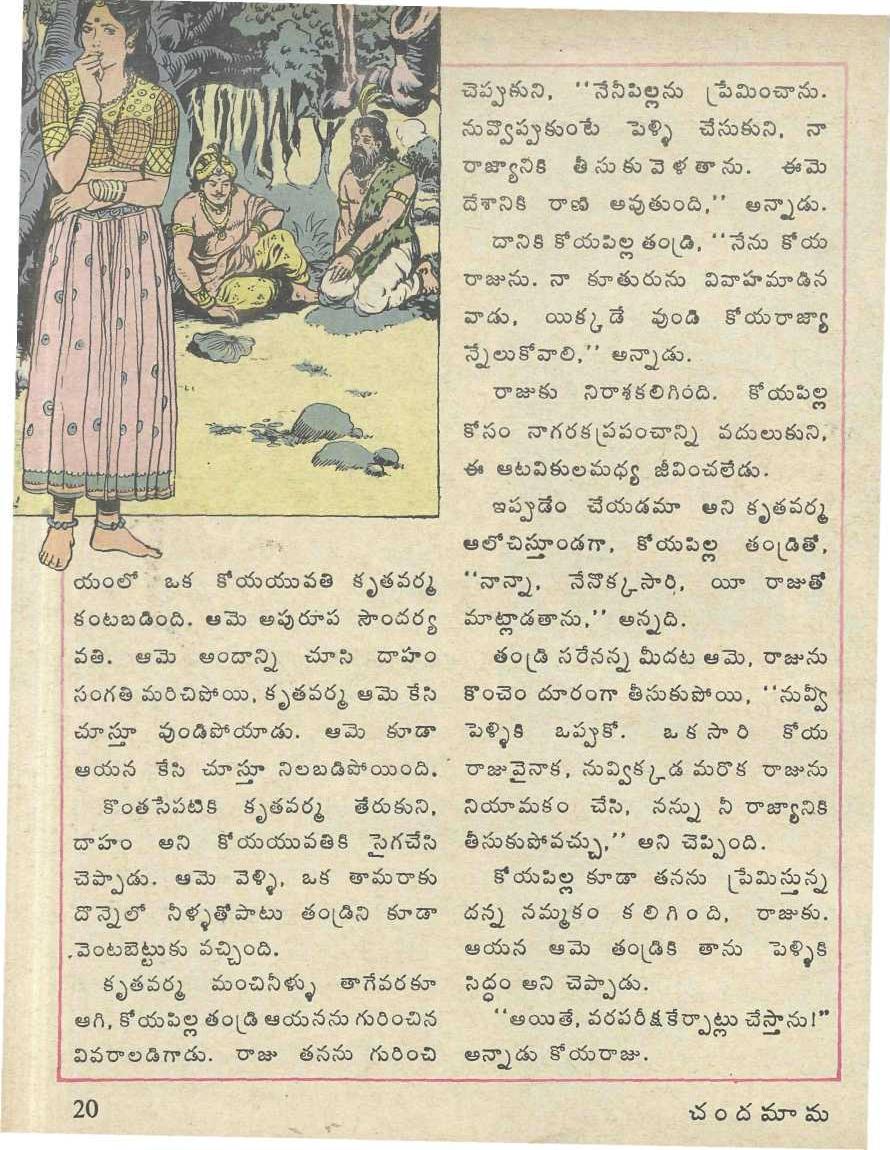 యంలో ఒక కోయయువతి కృతవర్మ
కంటబడింది. ఆమె అపురూప సౌందర్య
వతి. ఆమె అందాన్ని చూసి దాహం
సంగతి మరిచిపోయి, కృతవర్మ ఆమె కేసి
చూస్తూ వుండిపోయాడు. ఆమె కూడా
ఆయన కేసి చూస్తూ నిలబడిపోయింది.
కొంతసేపటికి కృతవర్మ తేరుకుని,
దాహం అని కోయయువతికి సైగచేసి
చెప్పాడు. ఆమె వెళ్ళి, ఒక తామరాకు
దొన్నెలో నీళ్ళతోపాటు తండ్రిని కూడా
వెంటబెట్టుకు వచ్చింది.
కృతవర్మ మంచినీళ్ళు తాగేవరకూ
ఆగి, కోయపిల్ల తండ్రి ఆయనను గురించిన
వివరాలడిగాడు. రాజు తనను గురించి
చెప్పుకుని, ‘‘నేనీపిల్లను ప్రేమించాను.
నువ్వొప్పుకుంటే పెళ్ళి చేసుకుని, నా
రాజ్యానికి తీసుకువెళతాను. ఈమె
దేశానికి రాణి అవుతుంది,’’ అన్నాడు.
దానికి కోయపిల్ల తండ్రి, ‘‘నేను కోయ
రాజును. నా కూతురును వివాహమాడిన
వాడు, యిక్కడే వుండి కోయరాజ్యా
న్నేలుకోవాలి,’’ అన్నాడు.
రాజుకు నిరాశకలిగింది. కోయపిల్ల
కోసం నాగరకప్రపంచాన్ని వదులుకుని,
ఈ ఆటవికులమధ్య జీవించలేడు.
ఇప్పుడేం చేయడమా అని కృతవర్మ
ఆలోచిస్తూండగా, కోయపిల్ల తండ్రితో,
‘‘నాన్నా, నేనొక్కసారి, యీ రాజుతో
మాట్లాడతాను,’’ అన్నది.
తండ్రి సరేనన్న మీదట ఆమె, రాజును
కొంచెం దూరంగా తీసుకుపోయి, ‘‘నువ్వీ
పెళ్ళికి ఒప్పుకో. ఒకసారి కోయ
రాజువైనాక, నువ్విక్కడ మరొక రాజును
నియామకం చేసి, నన్ను నీ రాజ్యానికి
తీసుకుపోవచ్చు,’’ అని చెప్పింది.
కోయపిల్ల కూడా తనను ప్రేమిస్తున్న
దన్న నమ్మకం కలిగింది, రాజుకు.
ఆయన ఆమె తండ్రికి తాను పెళ్ళికి
సిద్ధం అని చెప్పాడు.
‘‘అయితే, వరపరీక్షకేర్పాట్లు చేస్తాను!’’
అన్నాడు కోయరాజు.
20
చందమామ